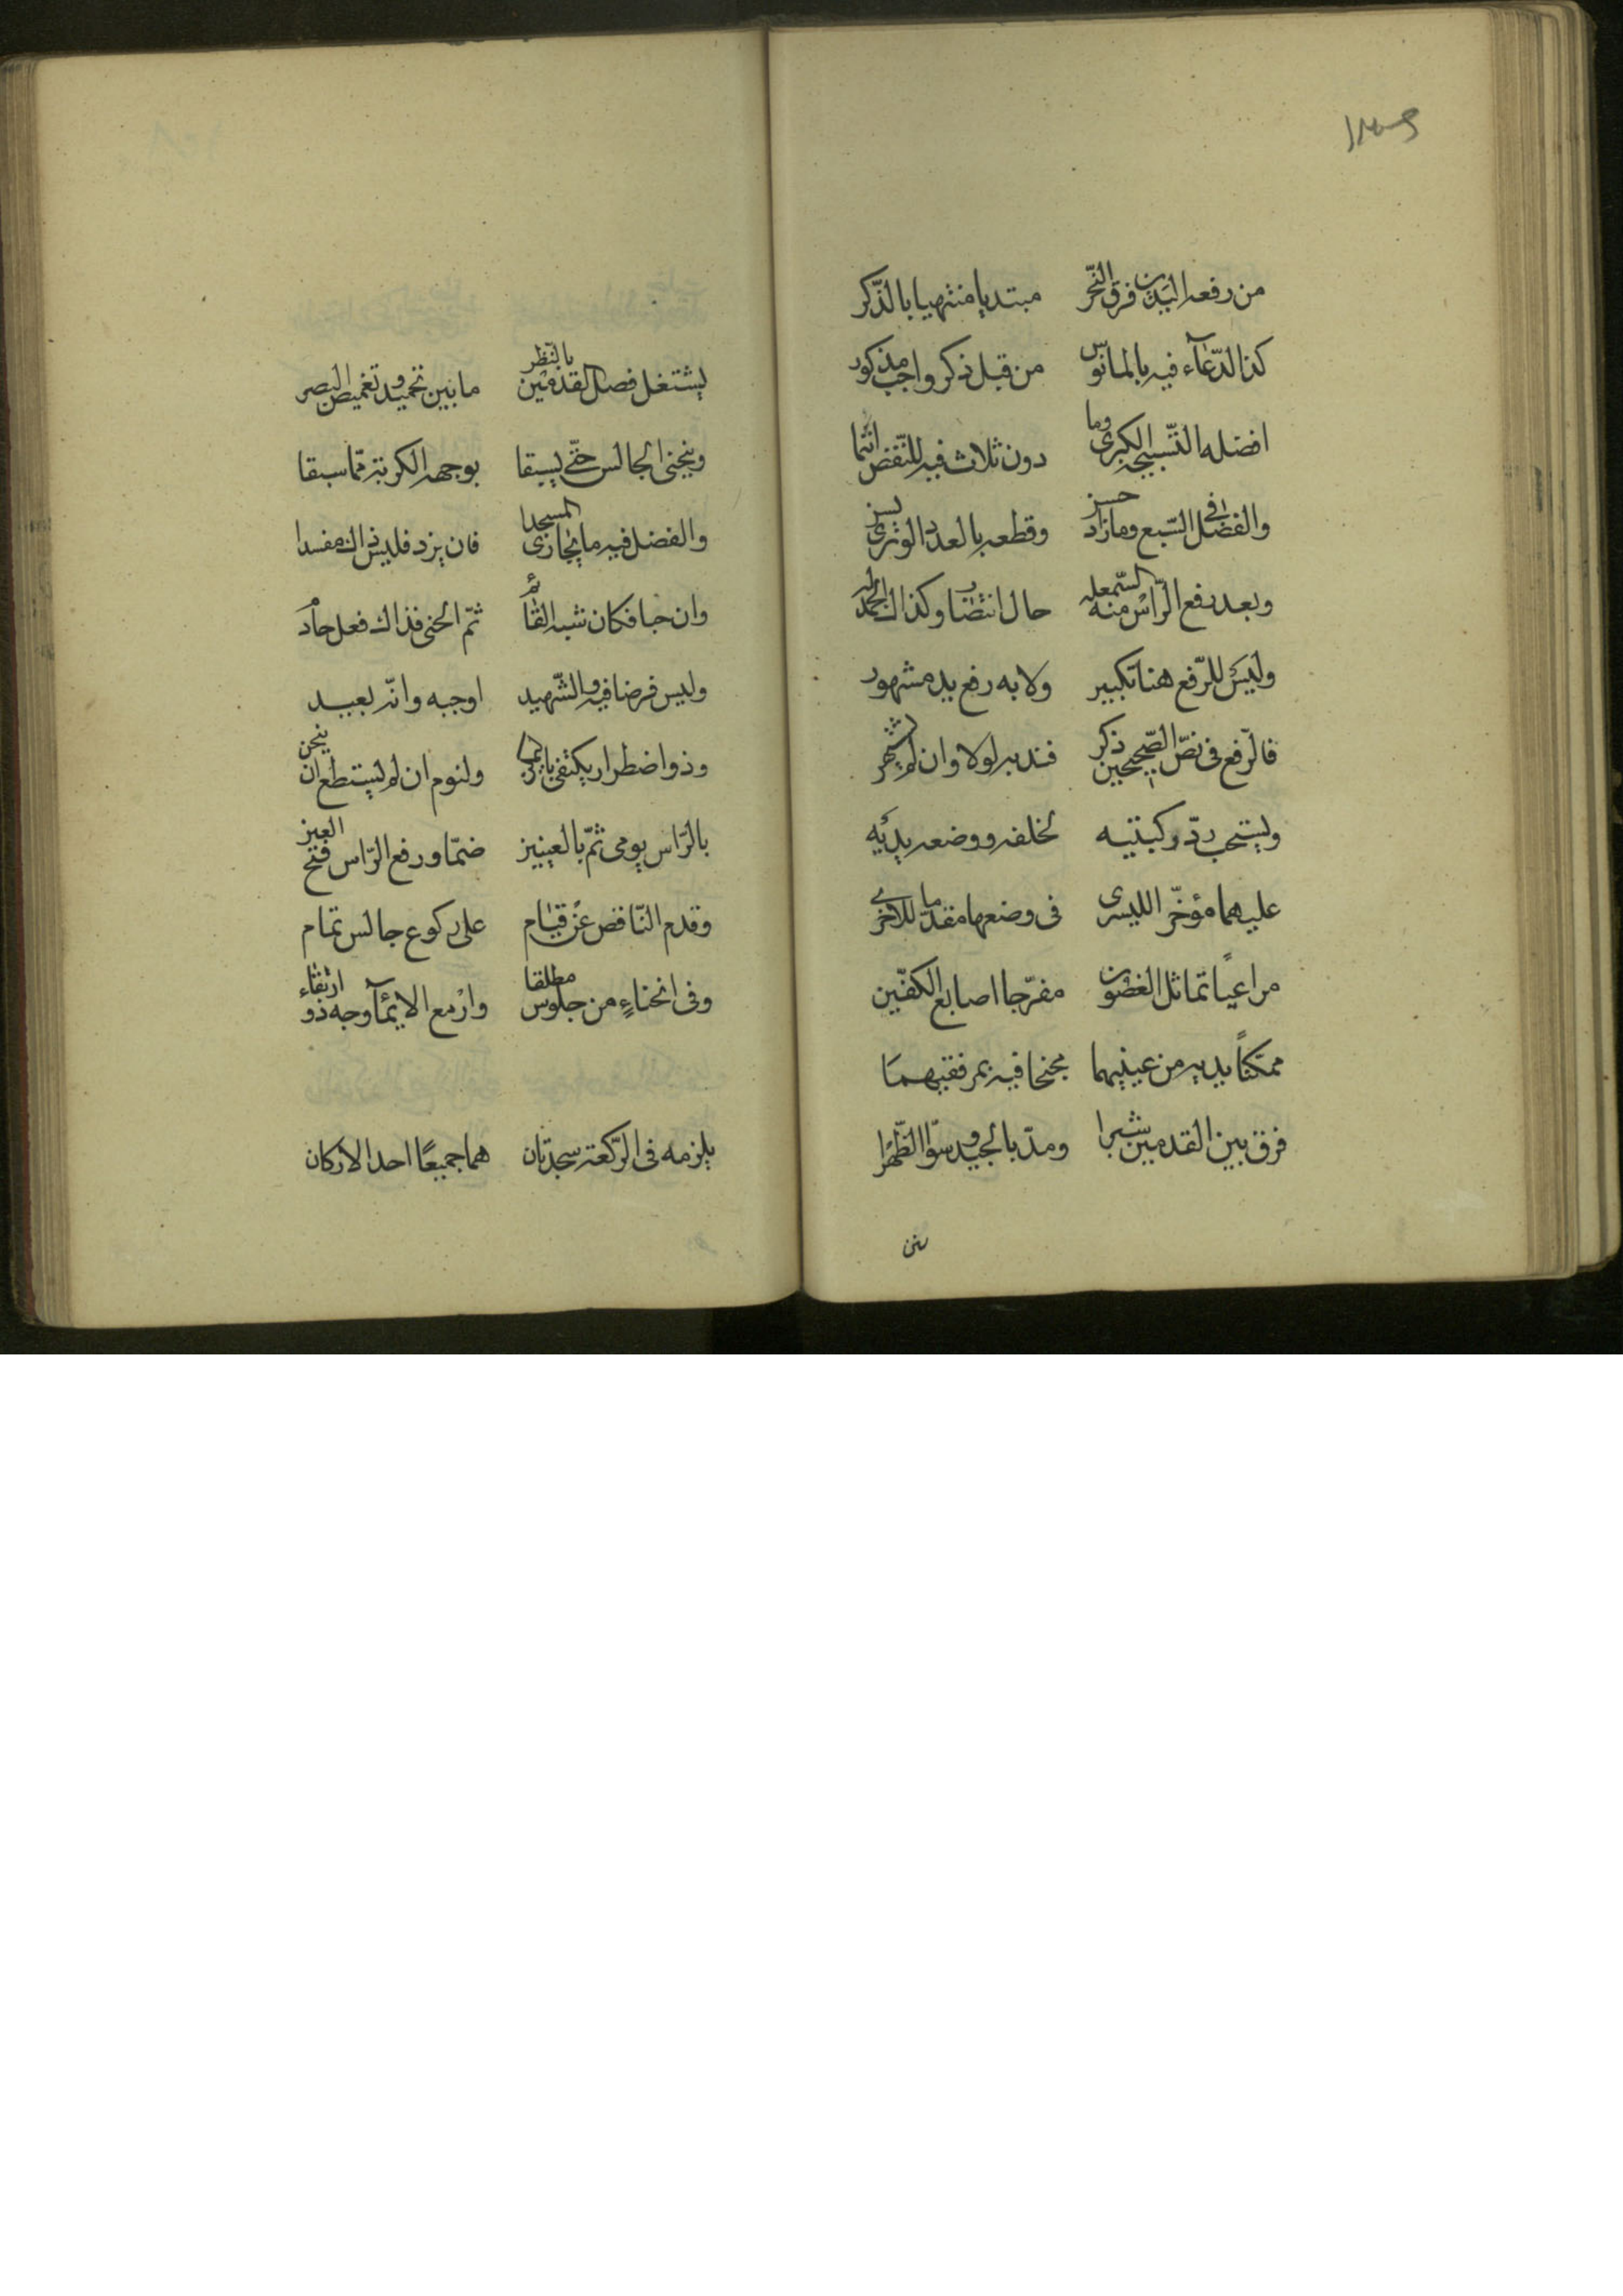 من رفعه اليدين فرق النحر مبتديا منتهيا بالذّكر
كذا الدّعآء فيه بالمانوس من قبل ذكر واجب مذكور
افضله التّسبيحه الكبرى وما دون ثلاث فيه للنّقض انتما
والفضل في السّبع وما زاد حسن وقطعه بالعدد الوترى يسن
وبعد رفع الرّاس منه السّمعله حال انتصاب وكذاك الحمد له
وليس للرّفع هنا تكبير ولا به رفع يد مشهور
فالرّفع في نصّ الصّحيحين ذكر فندبه لولا وان لم يشتهر
ويستحب ردّ ركبتيه لخلفه ووضعه يديه
عليهما مؤخّر الليسرى في وضعها مقدّما للاخرى
مراعيًا تماثل الغضون مفرّجا اصابع الكفّين
ممكنًا يديه من عينيهما مجنحا فيه بمرفقيهما
فرق بين القدمين شبرا ومدّ بالجيد وسوّا الظّهرا
يشتغل فصل القدمين بالنّظر ما بين تحميد وتغميض البصر
وينحنى الجالس حتّى يسبقا بوجهه الركبة ممّا سبقا
والفضل فيه ما يحاذى المسجدا فان يزد فليس ذاك مفسدا
وان حبا فكان شبه القائم ثمّ انحنى فذاك فعل حادم
وليس فرضا فيه والشّهيد اوجبه وانّه بعيد
وذو اضطرار يكتفى بايما ولنوم ان لم يستطع ان ينحن
بالرّاس يومى ثمّ بالعينين ضمّا ورفع الرّاس فتح العين
وقدم النّاقص عن قيام على ركوع جالس تمام
وفى انحناءٍ من جلوس مطلقا وارْمع الايمآ وجه ذو ارتقاء
يلزمه فى الرّكعة سجدتان هما جميعًا احد الاركان